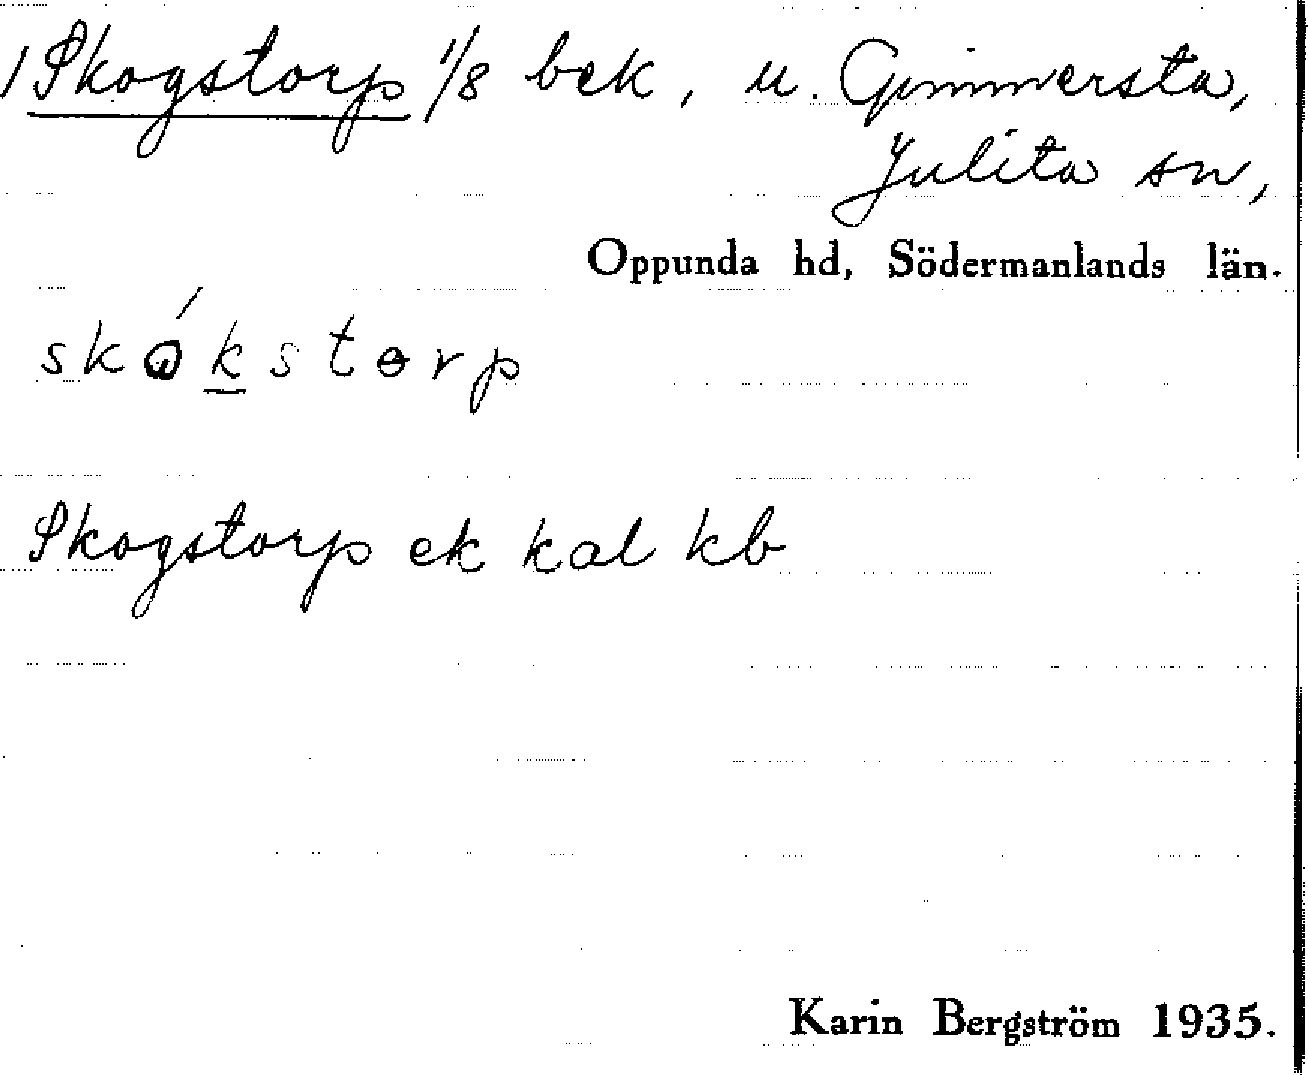 1 Skogstorp 1/8 bek, u. Gimmersta,
Julita sn,
Oppunda hd, Södermanlands län.
skó̀kstorp
Skogstorp ek kal kb
Karin Bergström 1935.